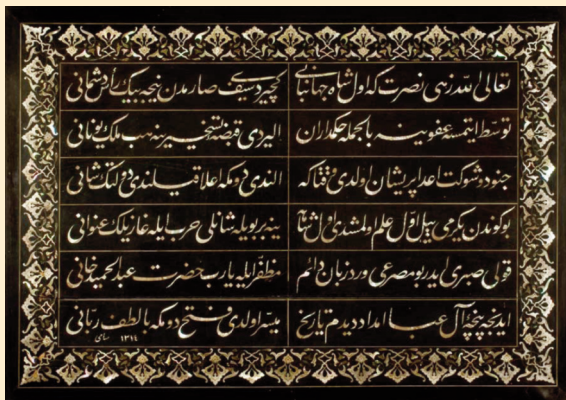 تعالی الله زهی نصرت که اول شاه جهانبانی کچیردی سیف صارمدن نیجه بیک دشمانی
توسط ایتمسه عفوینه بالجمله حکمداران الیردی قبضهٔ تسخیرینه هب ملک یونانی
جنود و شوکت اعدا پریشان اولدی وقتاکه الندی دومکه اعلا قیلندی دولتک شانی
بو کوندن یکرمی ییل اول علم اولمشدی اول شاها ینه بر بویله شانلی حرب ایله غازیلک عنوانی
قولی صبری ایدر بو مصرعی ورد زبان دائم مظفر ایله یارب حضرت عبدالحمید خانی
ایدنجه پنجهٔ آل عبا امداد دیدم تاریخ میسر اولدی فتح دومکه با لطف ربانی
١٣١٤ سامی